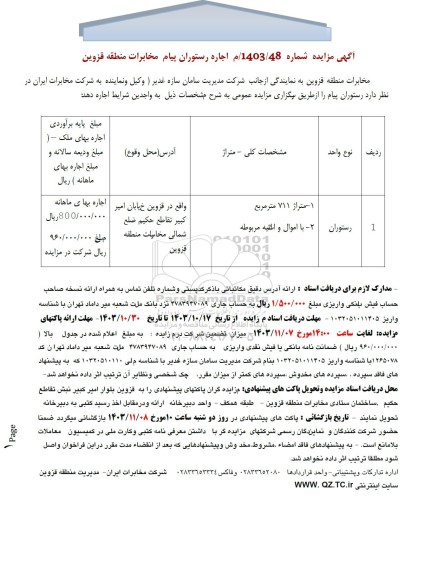 آگهی مزایده شماره 1403/48/م اجاره رستوران پیام مخابرات منطقه قزوین
مخابرات منطقه قزوین به نمایندگی ازجانب شرکت مدیریت سامان سازه غدیر ( وکیل ونماینده به شرکت مخابرات ایران در
نظر دارد رستوران پیام را ازطریق برگزاری مزایده عمومی به شرح مشخصات ذیل به واجدین شرایط اجاره دهد:
ردیف نوع واحد مشخصات کلی - متراژ آدرس(محل وقوع) مبلغ پایه برآوردی
اجاره بهای ملک – (
مبلغ ودیعه سالانه و
مبلغ اجاره بهای
ماهانه ) ریال
1 رستوران
1-متراژ ۷۱۱ مترمربع
۲- با اموال و اثاثیه مربوطه
واقع در قزوین خیابان امیر
کبیر تقاطع حکیم ضلع
شمالی مخابرات منطقه
قزوین
اجاره بها ی ماهانه
800/000/000ریال
مبلغ ۹۶۰/۰۰۰/۰۰۰
ریال شرکت در مزایده
ParsNamadData
- مدارک لازم برای دریافت اسناد : ارائه آدرس دقیق مکاتباتی باذکرکدپستی وشماره تلفن تماس به همراه ارائه نسخه صاحب
حساب فیش بانکی واریزی مبلغ ۱/۵۰۰/۰۰۰ ریال به حساب جاری ۴۷۸۹۳۷۰۸۹ نزد بانک ملت شعبه میر داماد تهران با شناسه
واریز ۱۰۳۲۰۵۱۰۱۱۴۰۵ - مهلت دریافت اسناد م زایده از تاریخ ۱۴۰۳/۱۰/۱۷ تا تاریخ ۱۴۰۳/۱۰/۳۰ - مهلت ارائه پاکتهای
مزایده: لغایت ساعت ۱۴:۰۰مورخ ۱۴۰۳/۱۱/۰۷ میزان تضمین شرکت درم زایده : به مبلغ اعلام شده در جدول بالا (
۹۶۰/۰۰۰/۰۰۰ ریال ) ضمانت نامه بانکی یا فیش نقدی واریزی به حساب جاری ۴۷۸۹۳۷۰۸۹ بانک ملت شعبه میر داماد تهرا ن کد
۶۵۰۷۸ با شناسه واریز ۱۰۳۲۰۵۱۰۱۱۴۰۵ بنام شرکت مدیریت سامان سازه غدیر با شناسه ملی ۱۰۳۲۰۵۱۰۱۱۰ که به پیشنهاد
های فاقد سپرده ، سپرده های مخدوش ،سپرده های کمتر از میزان مقرر، چک شخصی ونظایر آن ترتیب اثر داده نخواهد شد-
محل دریافت اسناد مزایده وتحویل پاکت های پیشنهادی: مزایده گران پاکتهای پیشنهادی را به قزوین بلوار امیر کبیر نبش تقاطع
حکیم ،ساختمان ستادی مخابرات منطقه قزوین - طبقه همکف - واحد دبیرخانه ارائه ودرمقابل اخذ رسید کتبی به دبیرخانه
تحویل نمایند - تاریخ بازگشائی : پاکت های پیشنهادی در روز دو شنبه ساعت ۱۰مورخ ۱۴۰۳/۱۱/۰۸ بازگشائی میگردد ضمنا
حضور شرکت کنندگان و نمایندگان رسمی شرکتهای مزایده گر با داشتن معرفی نامه کتبی وکارت ملی در کمیسیون معاملات
بلامانع است. - به پیشنهادهای فاقد امضاء ،مشروط،مخد وش وپیشنهادهایی که بعد از انقضاء مدت مقرر دراین فراخوان واصل
شود مطلقا ترتیب اثر داده نخواهد شد.
اداره تدارکات وپشتیبانی- واحد قراردادها ۰۲۸۳۳۶۵۲۰۸۰ وفاکس۰۲۸۳۳۶۵۳۳۳۴ شرکت مخابرات ایران- مدیریت منطقه قزوین
سایت اینترنتی WWW. QZ.TC.ir
Page 1